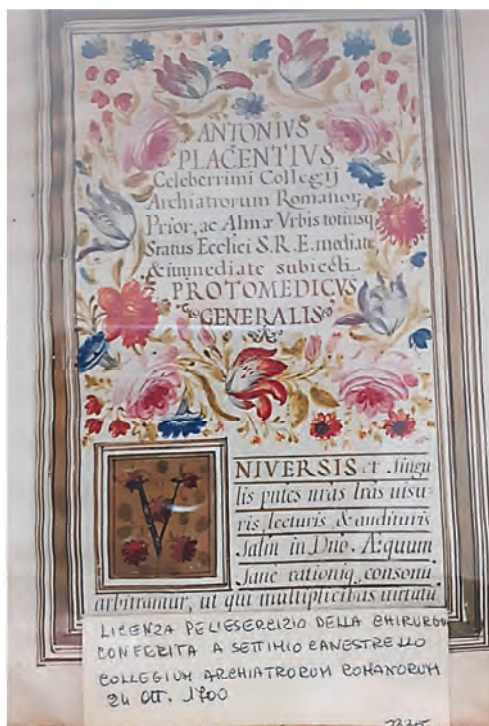 ANTONIVS
PLACENTIVS
Celeberrimi Collegij
Archiatrorum Romanor,
Prior, ac Almæ Vrbis totiusq
Status Ecclici S.R.E. mediate
& immediate subiecti
PROTOMEDICVS
GENERALIS
VNIVERSIS et Singu
lis pntes nras lras visu-
ris, lecturis & audituris
Salm in Dno. Æquum
Sane rationiq, consonu
arbitramur, ut qui multiplicibus virtutu
LICENZA PELIESERCIZIO DELLA CHIRURGI
CONFERITA A SETTIMIO CANESTRELLO
COLLEGIUM ARCHIATRORUM ROMANORUM
24 OTT. 1700